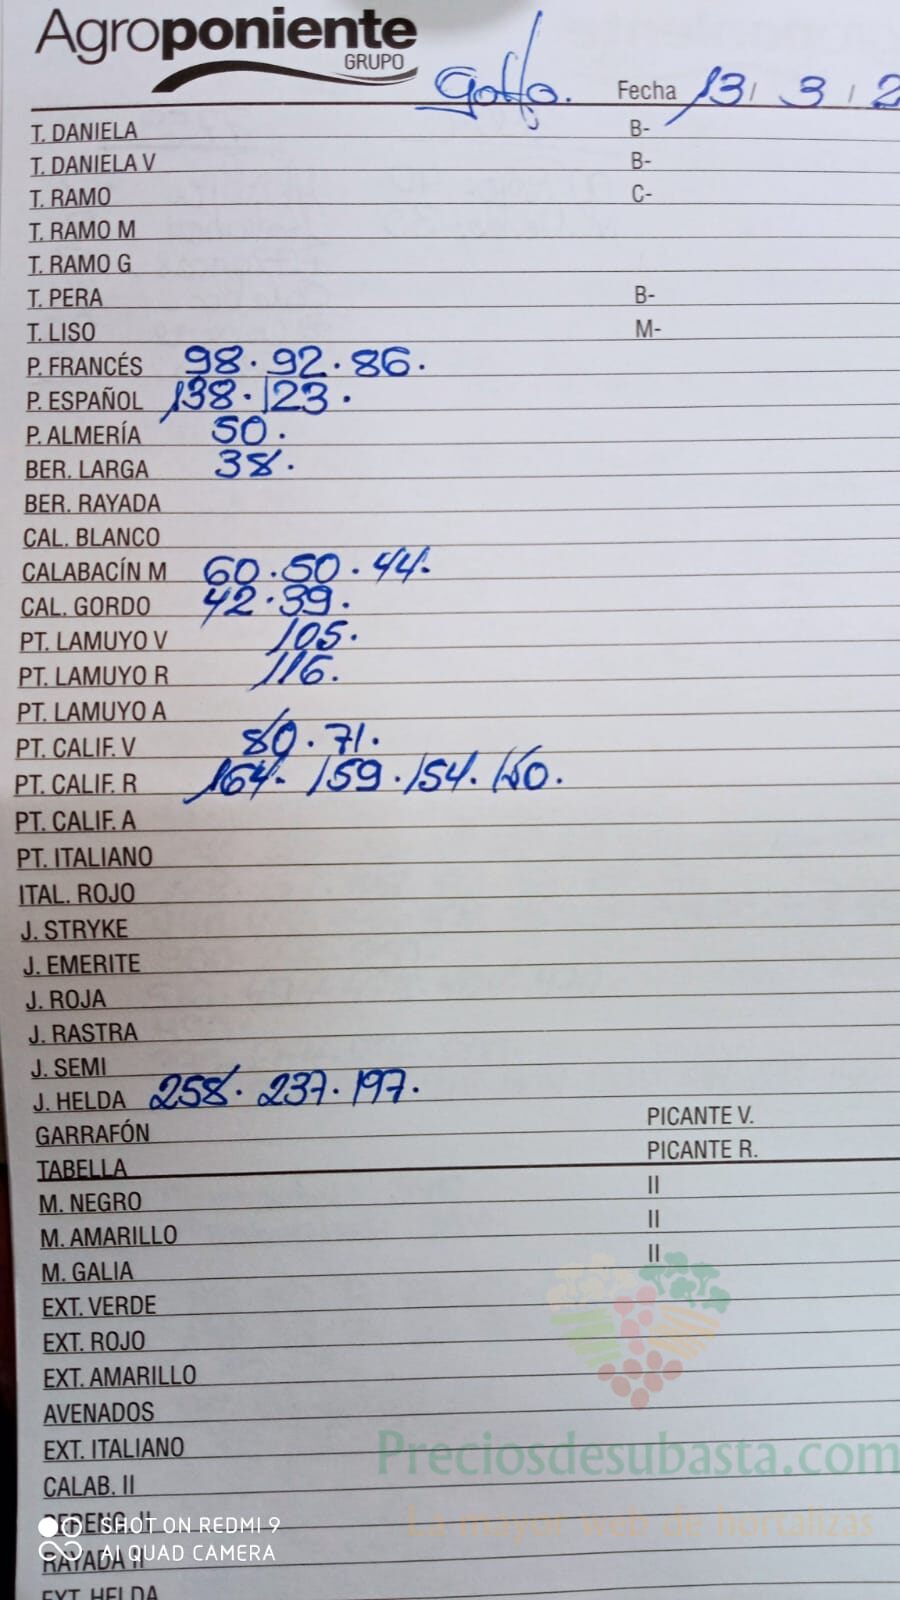 Agroponiente
GRUPO
Golfo. Fecha 13/ 3 / 2
T. DANIELA B-
T. DANIELA V B-
T. RAMO C-
T. RAMO M
T. RAMO G
T. PERA B-
T. LISO M-
P. FRANCÉS 98. 92. 86.
P. ESPAÑOL 138. 123.
P. ALMERÍA 50.
BER. LARGA 38.
BER. RAYADA
CAL. BLANCO
CALABACÍN M 60. 50. 44.
CAL. GORDO 42. 39.
PT. LAMUYO V 105.
PT. LAMUYO R 116.
PT. LAMUYO A
PT. CALIF. V 80. 71.
PT. CALIF. R 164. 159. 154. 150.
PT. CALIF. A
PT. ITALIANO
ITAL. ROJO
J. STRYKE
J. EMERITE
J. ROJA
J. RASTRA
J. SEMI
J. HELDA 258. 237. 197.
GARRAFÓN PICANTE V.
TABELLA PICANTE R.
M. NEGRO II
M. AMARILLO II
M. GALIA II
EXT. VERDE
EXT. ROJO
EXT. AMARILLO
AVENADOS
EXT. ITALIANO
Preciosdesubasta.com
CALAB. II
La mayor web de hortalizas
BERENG. II
SHOT ON REDMI 9
AI QUAD CAMERA
RAYADA II
EXT. HELDA